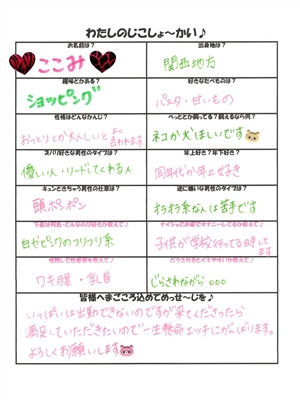 わたしのじこしょ〜かい♪
お名前は？
出身地は？
ここみ
関西地方
趣味とかある？
好きなたべものは？
ショッピング
パスタ・甘いもの
性格はどんなかんじ？
ぺっととか飼ってる？飼えるなら何？
おっとりとか大人しいとよく言われます
ネコか犬ほしいです
ズバリ好きな男性のタイプは？
年上好き？年下好き？
優しい人・リードしてくれる人
同年代か年上好き
キュンときちゃう男性の仕草は？
逆に嫌いな男性のタイプは？
頭ポンポン
オラオラ系な人は苦手です
下着は何色・どんなのが好きか教えて♪
白かピンクのフリフリ系
子供が学校行ってる日中してます
性感帯
ワキ腹・乳首
じらされながら。。。
皆様へまごころ込めてめっせ〜じを♪
いっぱいは出勤できないのですが来てくださったら
満足していただきたいので一生懸命エッチにがんばります。
よろしくお願いします